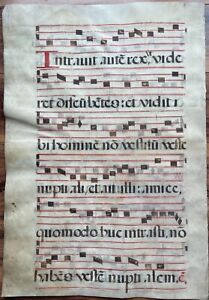 Intravit autē rex: vt vide
ret discūbētes: et vidit i
bi hominē nō vestitū veste
nuptiali, et ait illi: amice,
quomodo huc intrasti, nō
habēs vestē nuptialem.